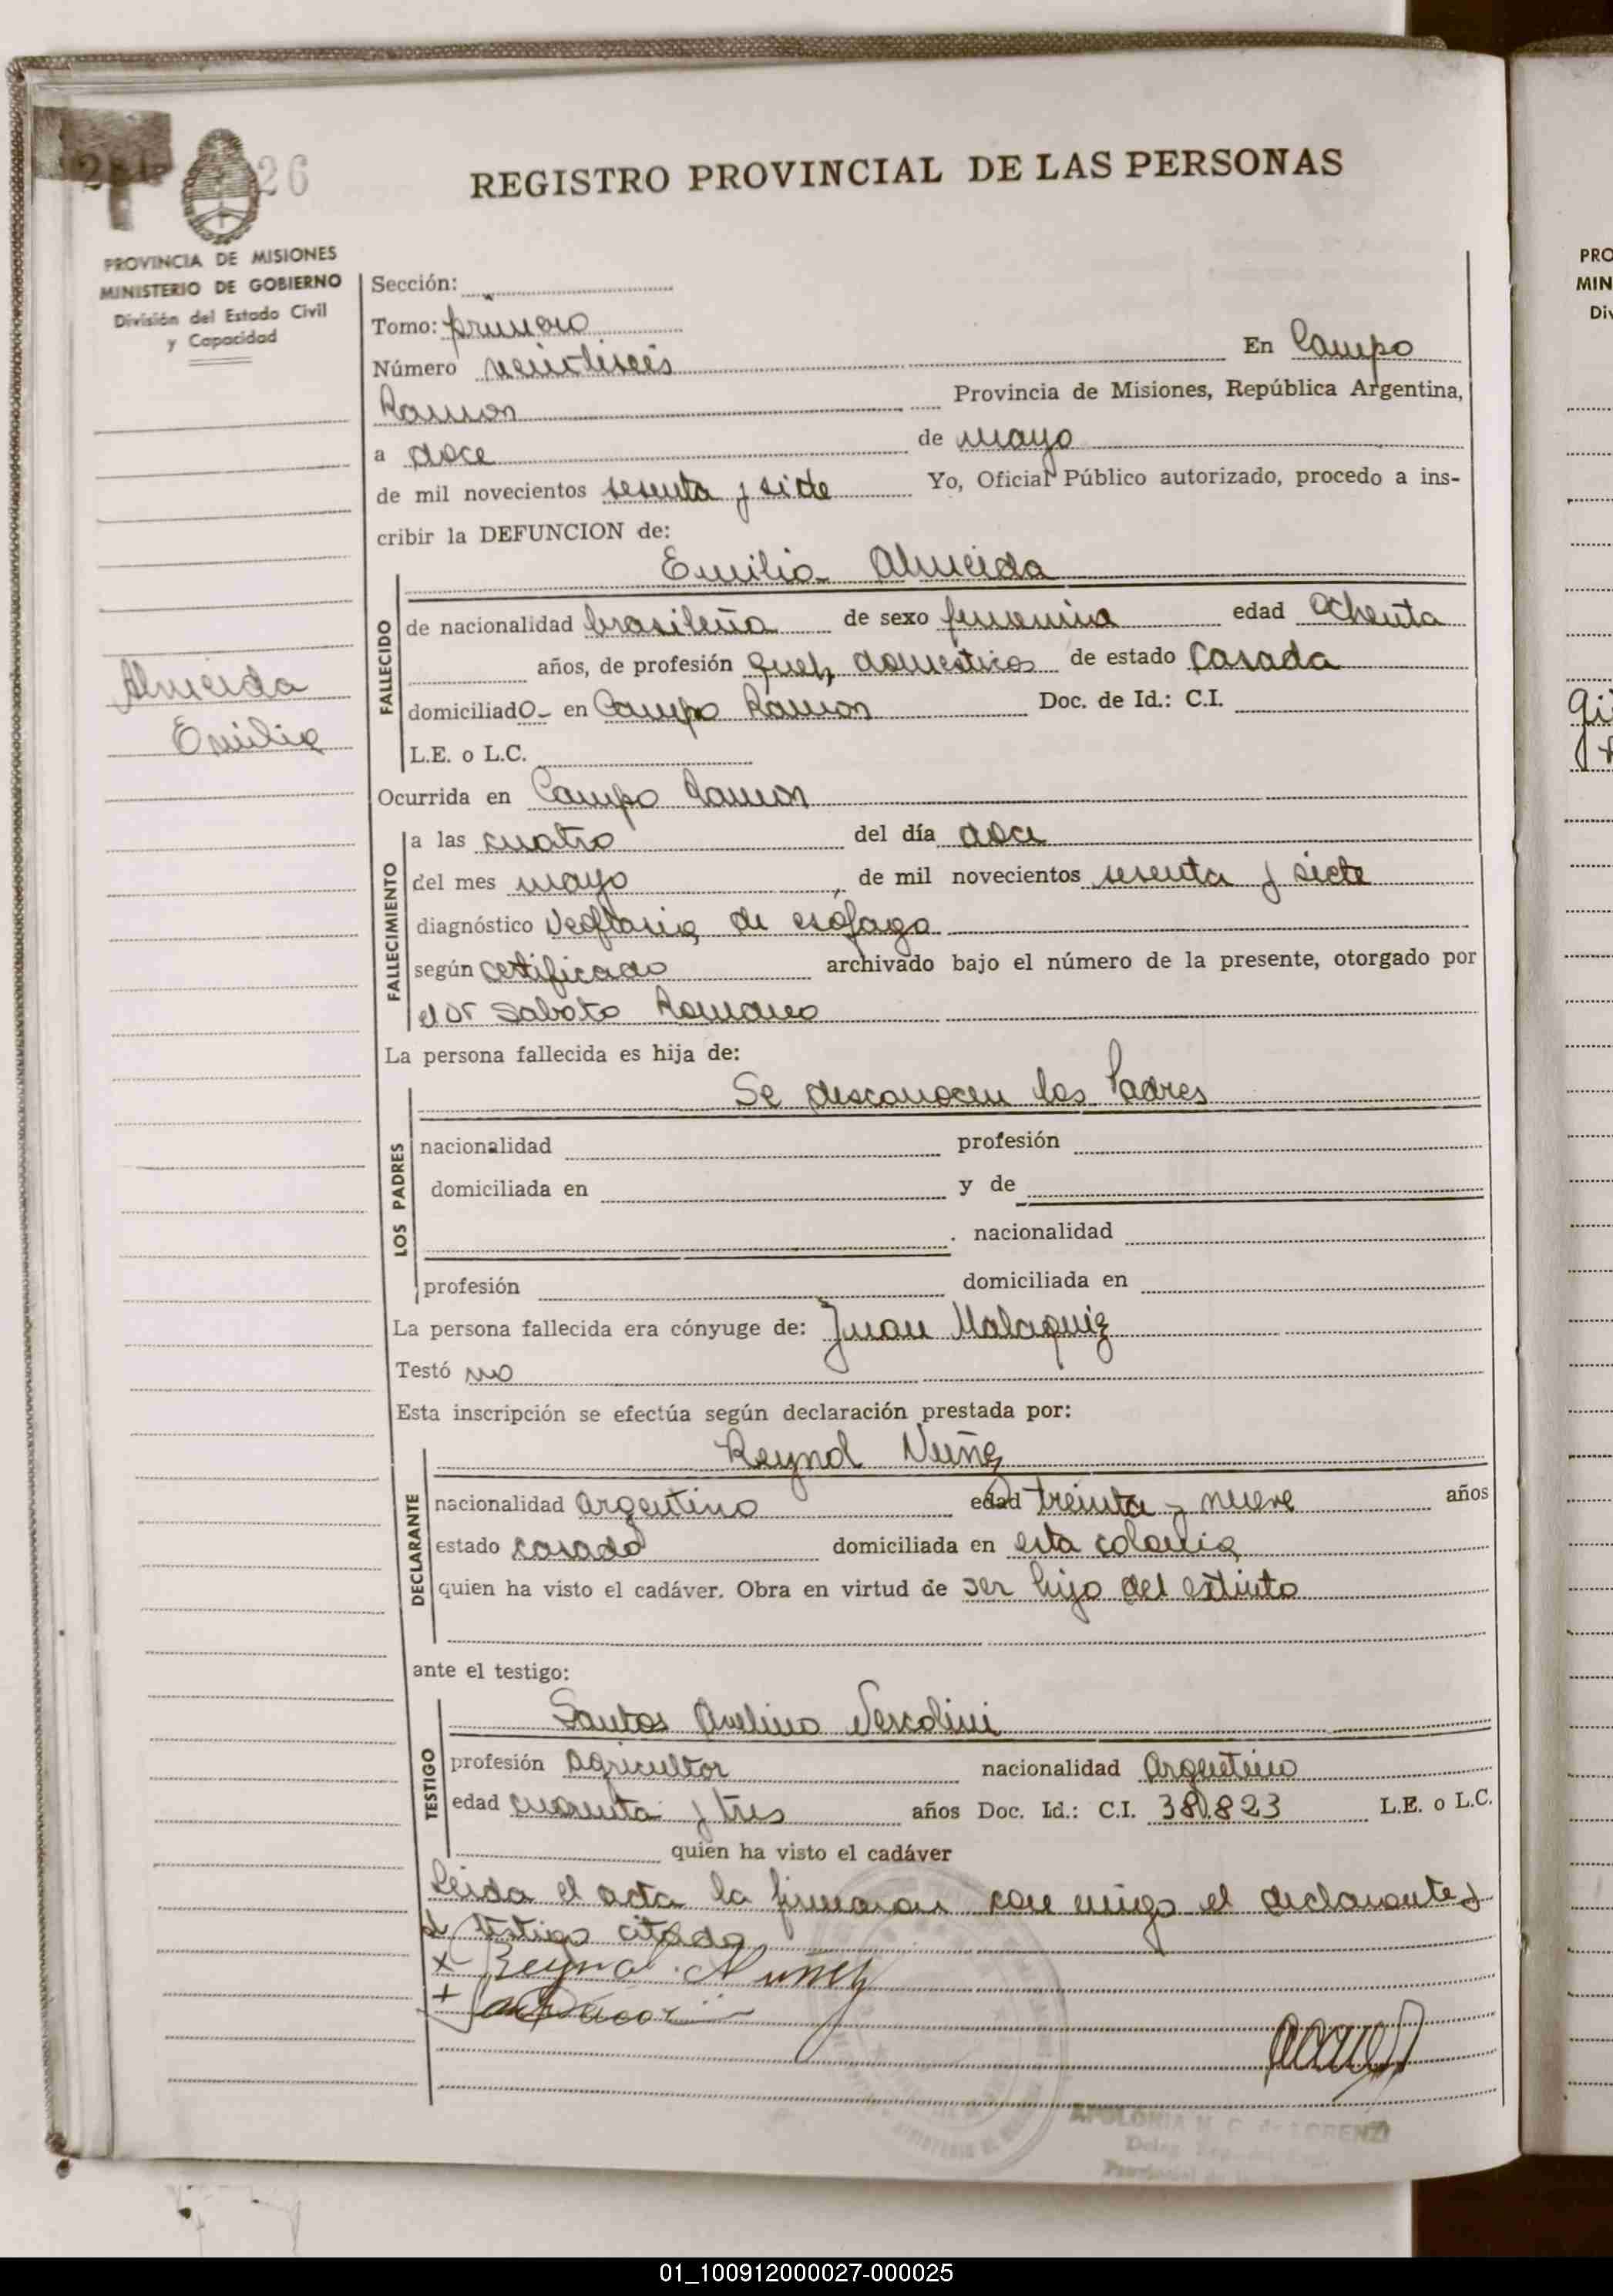 26
REGISTRO PROVINCIAL DE LAS PERSONAS
PROVINCIA DE MISIONES
MINISTERIO DE GOBIERNO
División del Estado Civil
y Capacidad
Sección:
Tomo: primero
Número veintiseis En Campo
Ramon Provincia de Misiones, República Argentina,
a doce de mayo
de mil novecientos sesenta y siete Yo, Oficial Público autorizado, procedo a ins-
cribir la DEFUNCION de:
Emilia Almeida
FALLECIDO
de nacionalidad brasileña de sexo femenina edad ochenta
años, de profesión queh domesticos de estado Casada
domiciliado- en Campo Ramon Doc. de Id.: C.I.
L.E. o L.C.
Almeida
Emilia
Ocurrida en Campo Ramon
FALLECIMIENTO
a las cuatro del día doce
del mes mayo, de mil novecientos sesenta y siete
diagnóstico Neoplasia de esófago
según certificado archivado bajo el número de la presente, otorgado por
el Dr Sabato Romano
La persona fallecida es hija de:
Se desconocen los Padres
LOS PADRES
nacionalidad profesión
domiciliada en y de
. nacionalidad
profesión domiciliada en
La persona fallecida era cónyuge de: Juan Malaquiz
Testó no
Esta inscripción se efectúa según declaración prestada por:
Reynol Nuñez
DECLARANTE
nacionalidad argentino edad treinta y nueve años
estado casado domiciliada en esta colonia
quien ha visto el cadáver. Obra en virtud de ser hijo del extinto
ante el testigo:
Santos Avelino
TESTIGO
profesión Agricultor nacionalidad Argentino
edad cuarenta y tres años Doc. Id.: C.I. 380.823 L.E. o L.C.
quien ha visto el cadáver
Leida el acta la firmaron con migo el declarante y
el testigo citado
x Reynol Nuñez
+
APOLONIA M. C. de LORENZI
PRO
MIN
Di
01_100912000027-000025